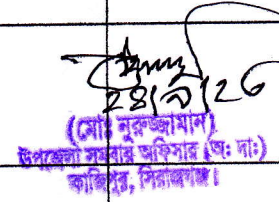 28/১/26
(মোঃ নুরুজ্জামান)
উপজেলা সমবায় অফিসার (অ: দা:)
কাজিপুর, সিরাজগঞ্জ।